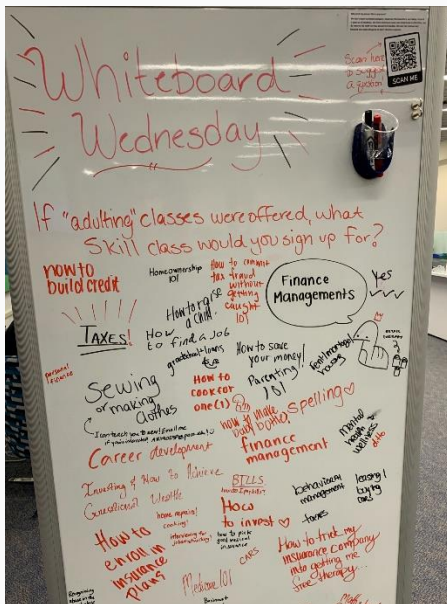 Whiteboard
Wednesday
Scan here
to suggest
a question
SCAN ME
If "adulting" classes were offered, what
Skill class would you sign up for?
how to
build credit
Homeownership
101
How to commit
tax fraud
without
getting
caught
101
Finance
Managements
Yes
TAXES!
How to raise
a child
How
to find a job
personal
finance
How to save
your money!
Parenting
101
Sewing
or making
Clothes
How to
cook for
one (1)
spelling
finance
management
Mental
health
wellness
ditto
Career development
Investing & How to Achieve
Generational Wealth
BILLS
behavioral
management
leasing/
buying
cars!
home repairs!
cooking!
How
to invest
taxes
How to
enroll in
insurance
plans
how to pick
good medical
insurance
CARS
Medicare 101
How to trick my
insurance company
into getting me
free therapy...